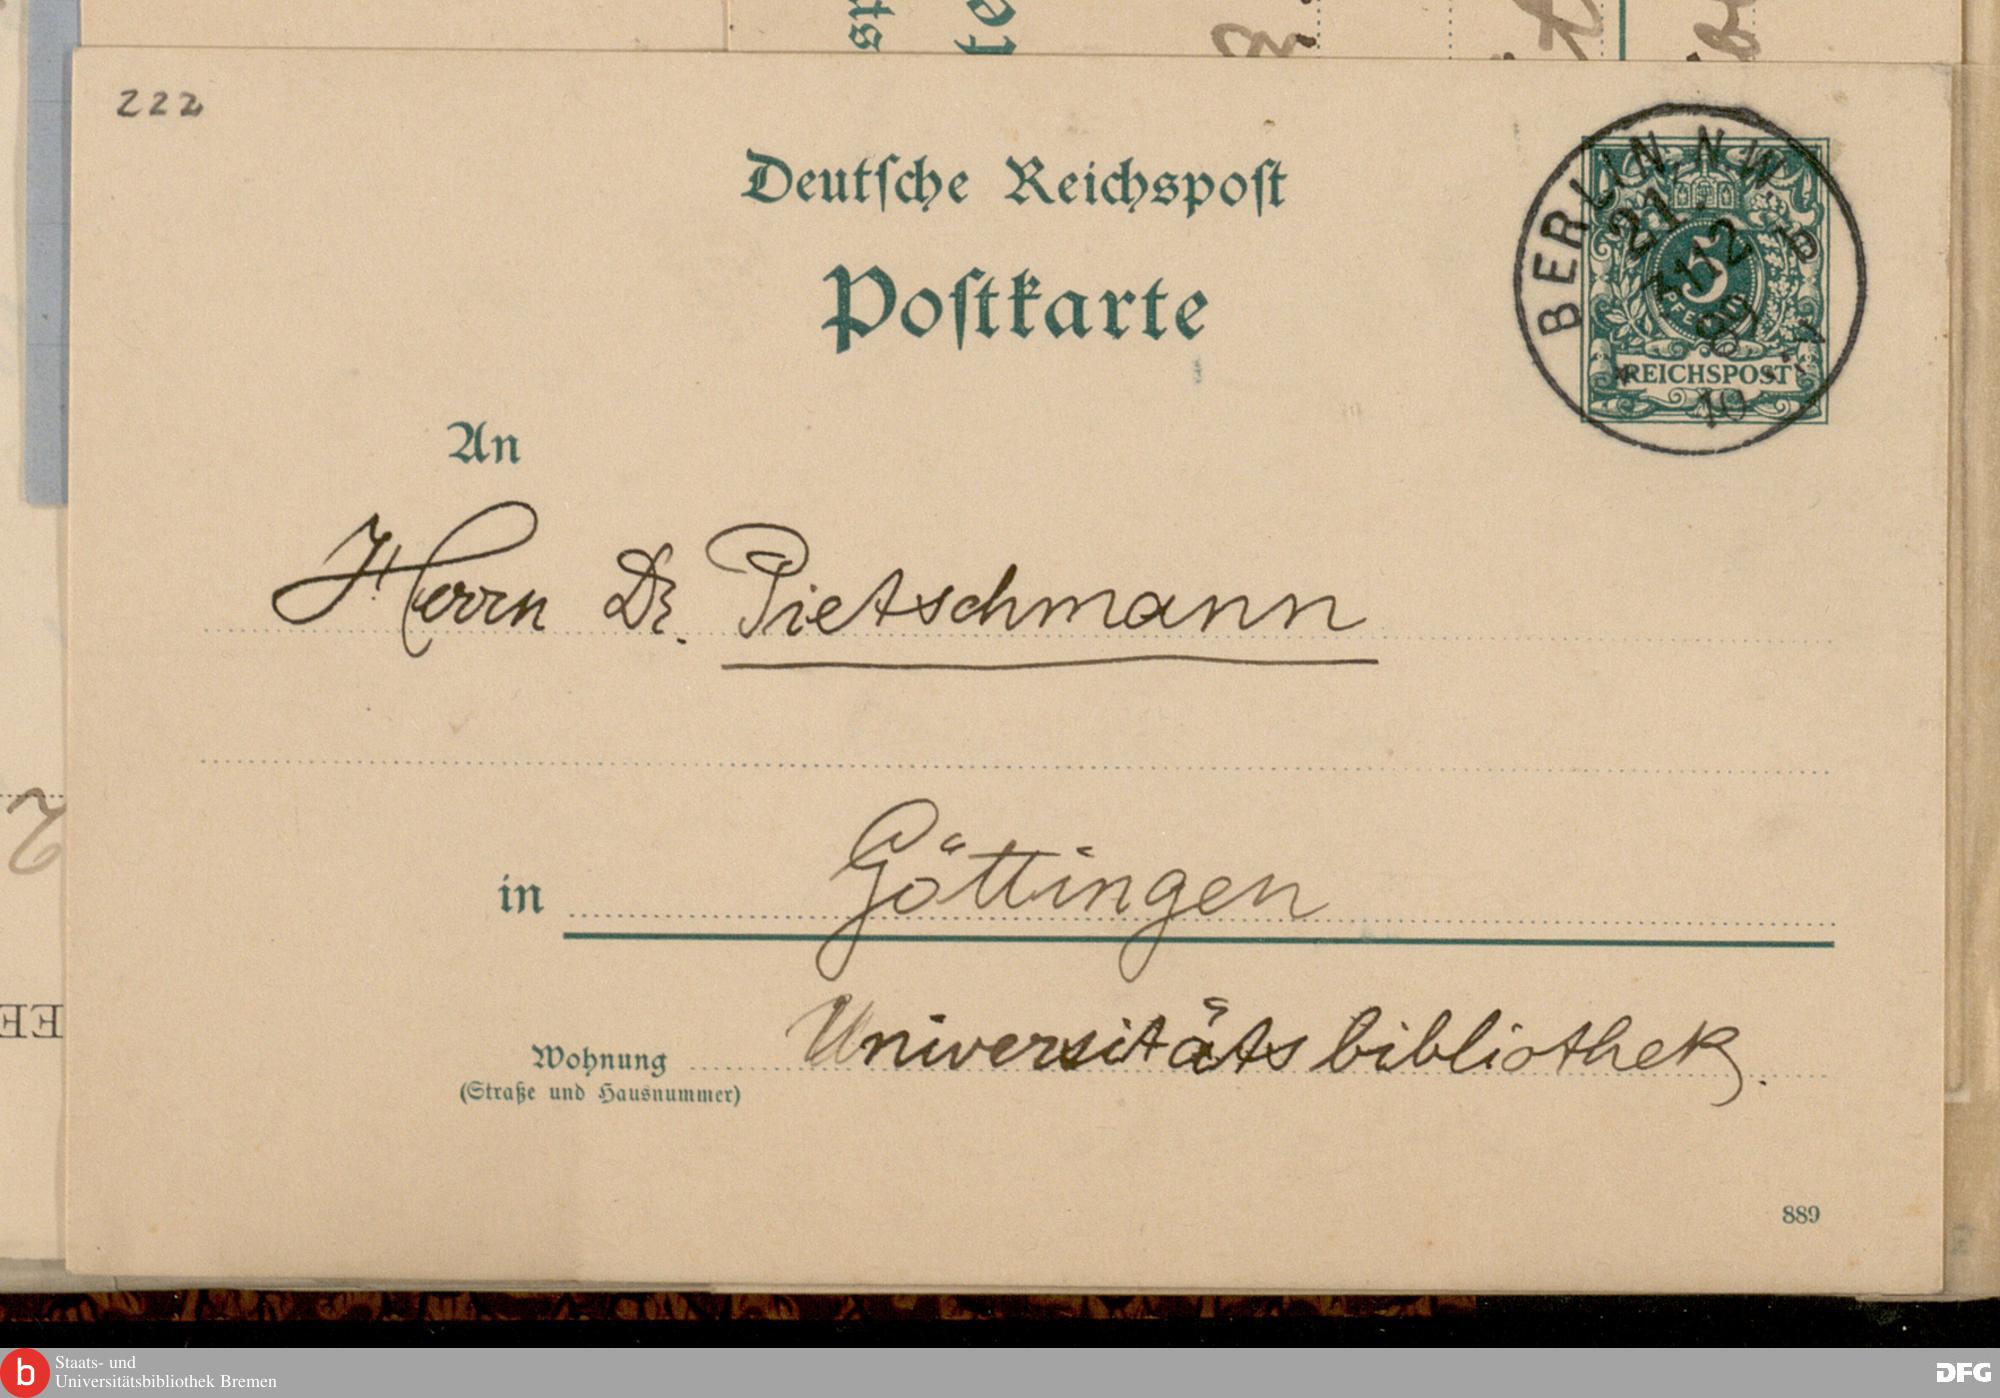 222
Deutsche Reichspost
Postkarte
BERLIN, N.W.
21
12
89
10
5
REICHSPOST
An
Herrn Dr. Pietschmann
in Göttingen
Wohnung Universitätsbibliothek.
(Straße und Hausnummer)
889
b Staats- und
Universitätsbibliothek Bremen
DFG